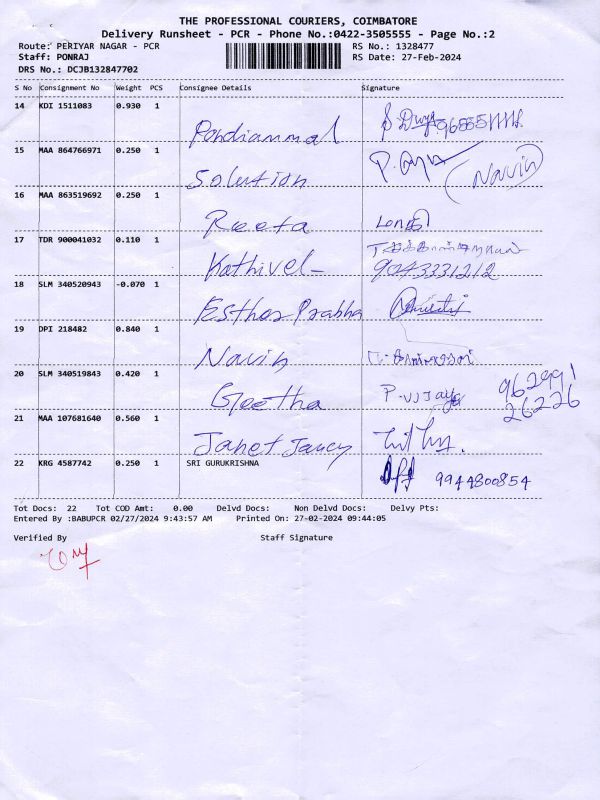 THE PROFESSIONAL COURIERS, COIMBATORE
Delivery Runsheet - PCR - Phone No.:0422-3505555 - Page No.:2
Route: PERIYAR NAGAR - PCR RS No.: 1328477
Staff: PONRAJ RS Date: 27-Feb-2024
DRS No.: DCJB132847702
S No Consignment No Weight PCS Consignee Details Signature
14 KDI 1511083 0.930 1
Pandiammal
15 MAA 864766971 0.250 1
Solution (Navin)
16 MAA 863519692 0.250 1
Reeta
17 TDR 900041032 0.110 1
Kathivel 9043331212
18 SLM 340520943 -0.070 1
Esther Prabha
19 DPI 218482 0.840 1
Navin
20 SLM 340519843 0.420 1
Geetha P. Vijaya 962991
26226
21 MAA 107681640 0.560 1
Janet Jancy
22 KRG 4587742 0.250 1 SRI GURUKRISHNA
9944800854
Tot Docs: 22 Tot COD Amt: 0.00 Delvd Docs: Non Delvd Docs: Delvy Pts:
Entered By :BABUPCR 02/27/2024 9:43:57 AM Printed On: 27-02-2024 09:44:05
Verified By Staff Signature